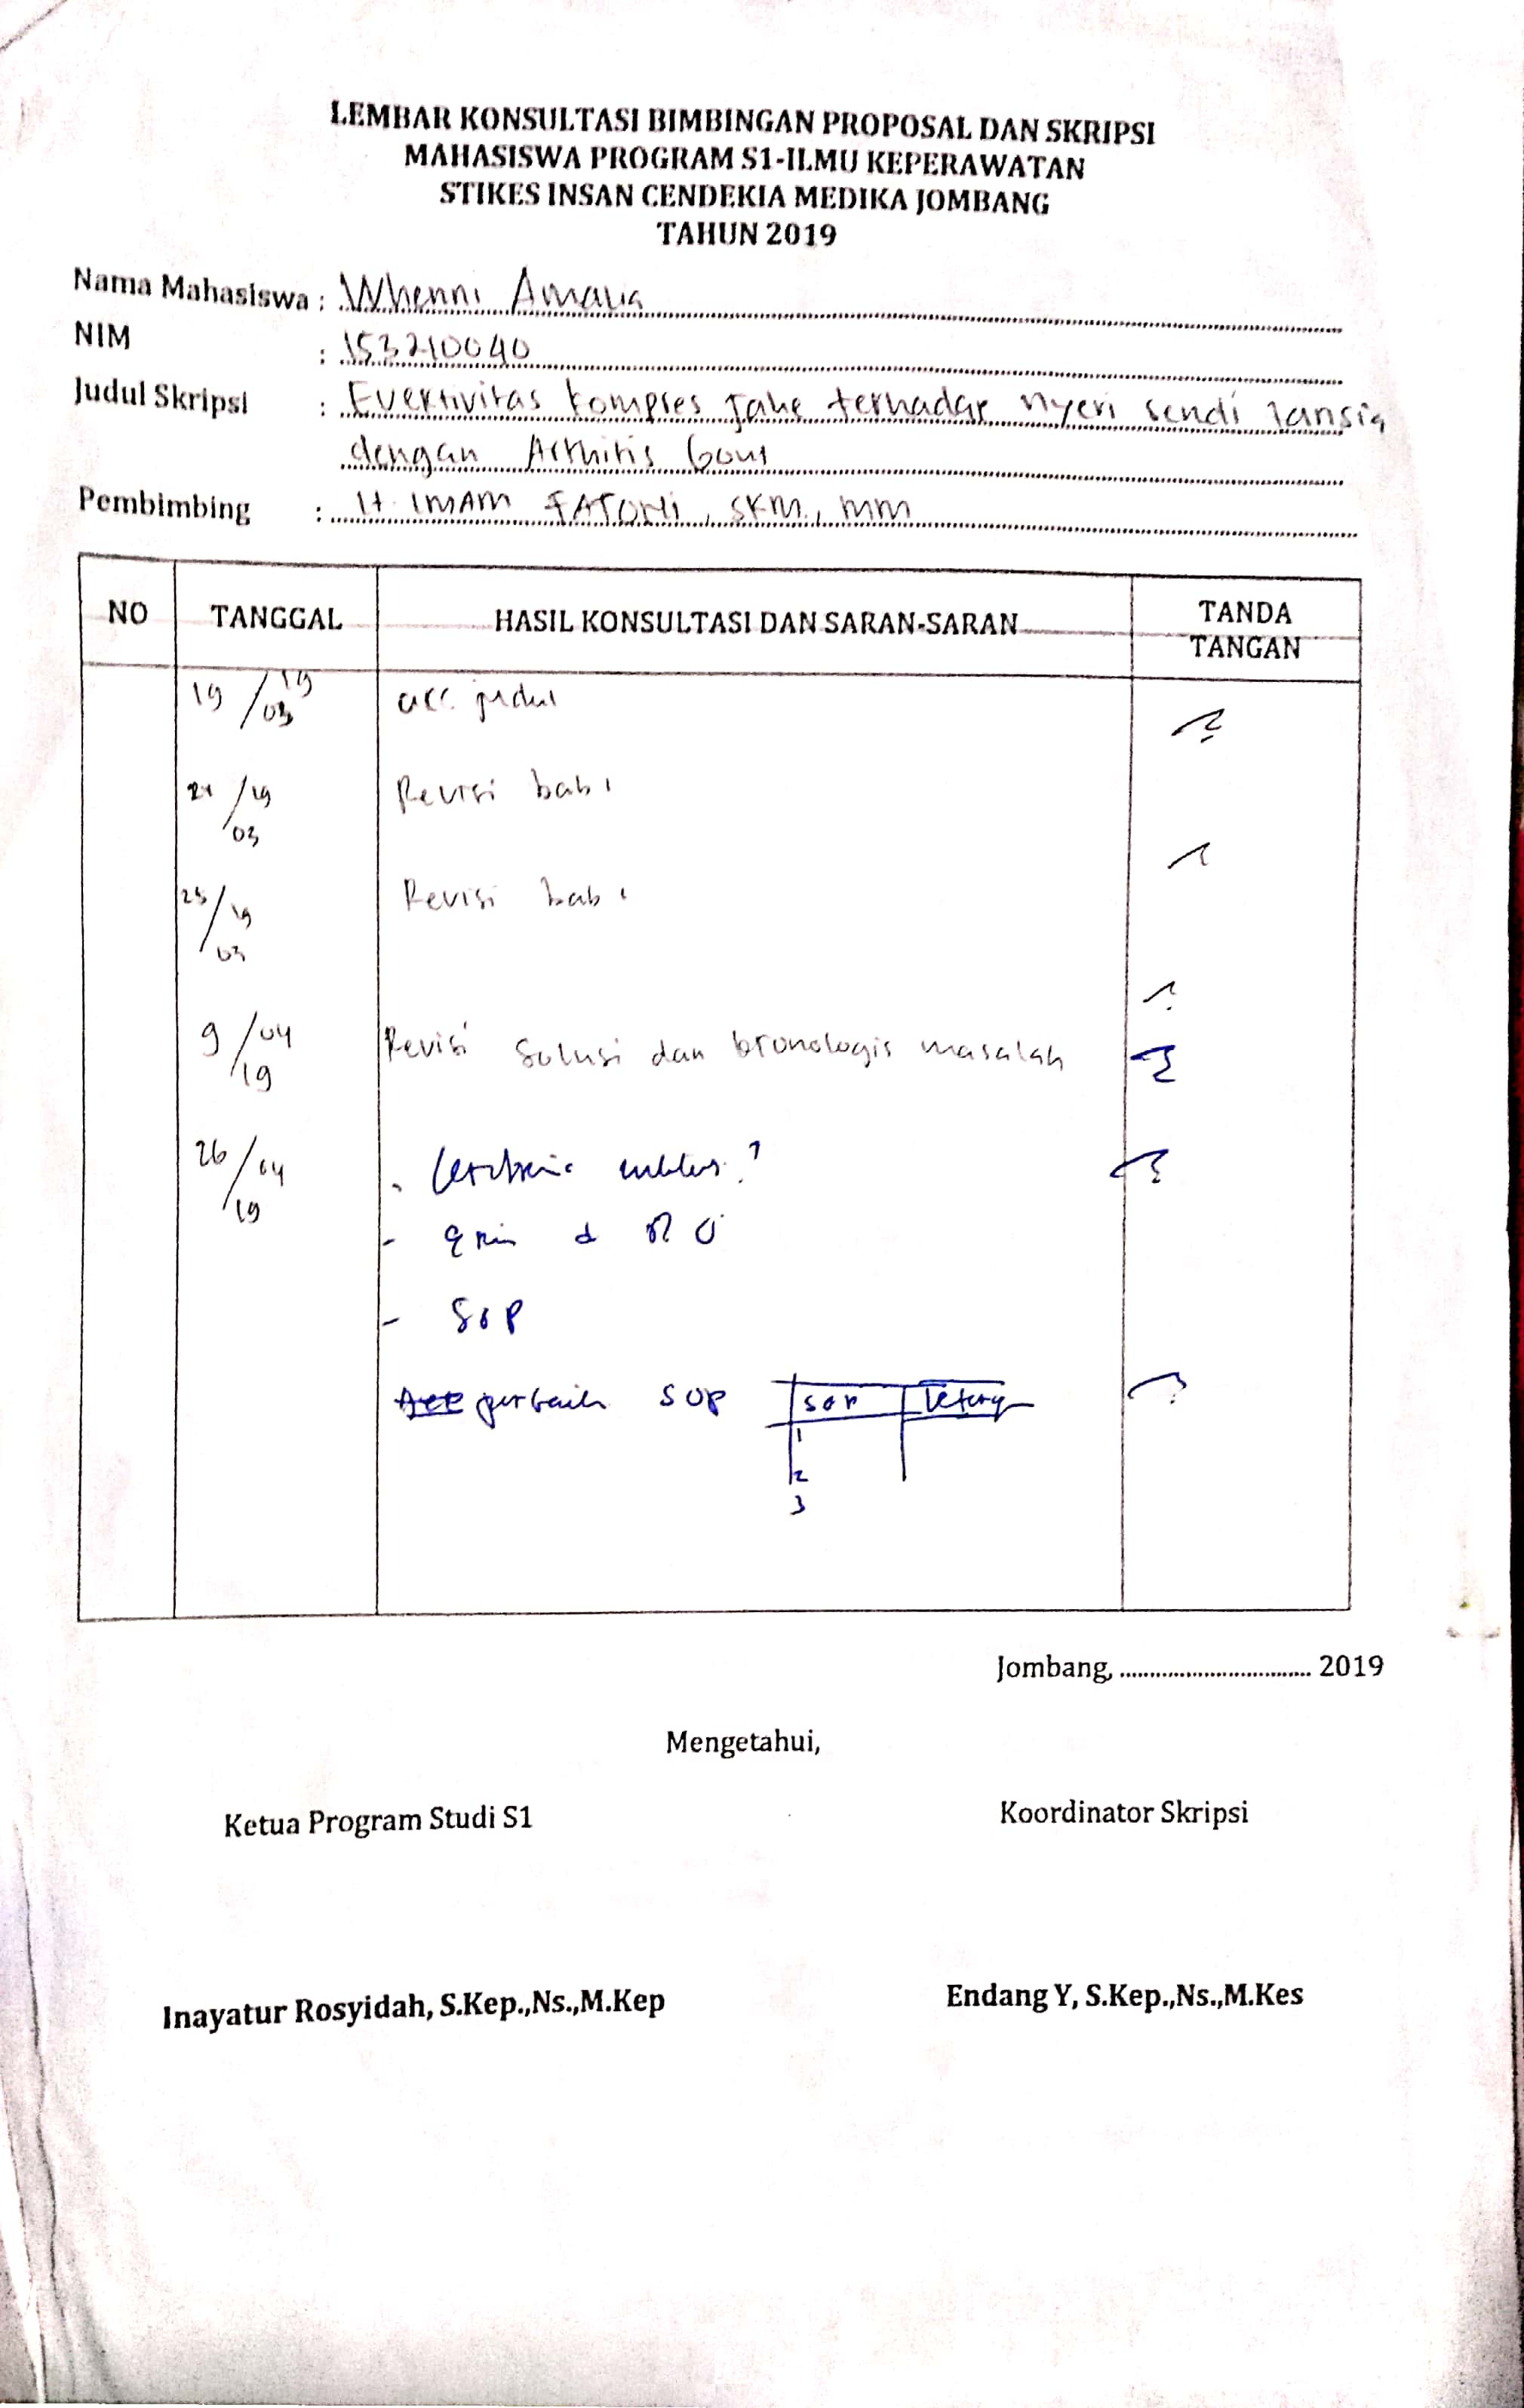 LEMBAR KONSULTASI BIMBINGAN PROPOSAL DAN SKRIPSI
MAHASISWA PROGRAM S1-ILMU KEPERAWATAN
STIKES INSAN CENDEKIA MEDIKA JOMBANG
TAHUN 2019
Nama Mahasiswa : Whenni Amalia
NIM : 153210040
Judul Skripsi : Evektivitas kompres Jahe terhadap nyeri sendi lansia
dengan Arthitis Gout
Pembimbing : H. IMAM FATONI, SKM., MM
NO TANGGAL HASIL KONSULTASI DAN SARAN-SARAN TANDA TANGAN
19/03 19 acc judul
21/03 19 Revisi bab 1
25/03 19 Revisi bab 1
9/04 19 Revisi Solusi dan kronologis masalah
26/04 19
- SOP
SOP SOP
1
2
3
Jombang, ................................ 2019
Mengetahui,
Ketua Program Studi S1 Koordinator Skripsi
Inayatur Rosyidah, S.Kep.,Ns.,M.Kep Endang Y, S.Kep.,Ns.,M.Kes